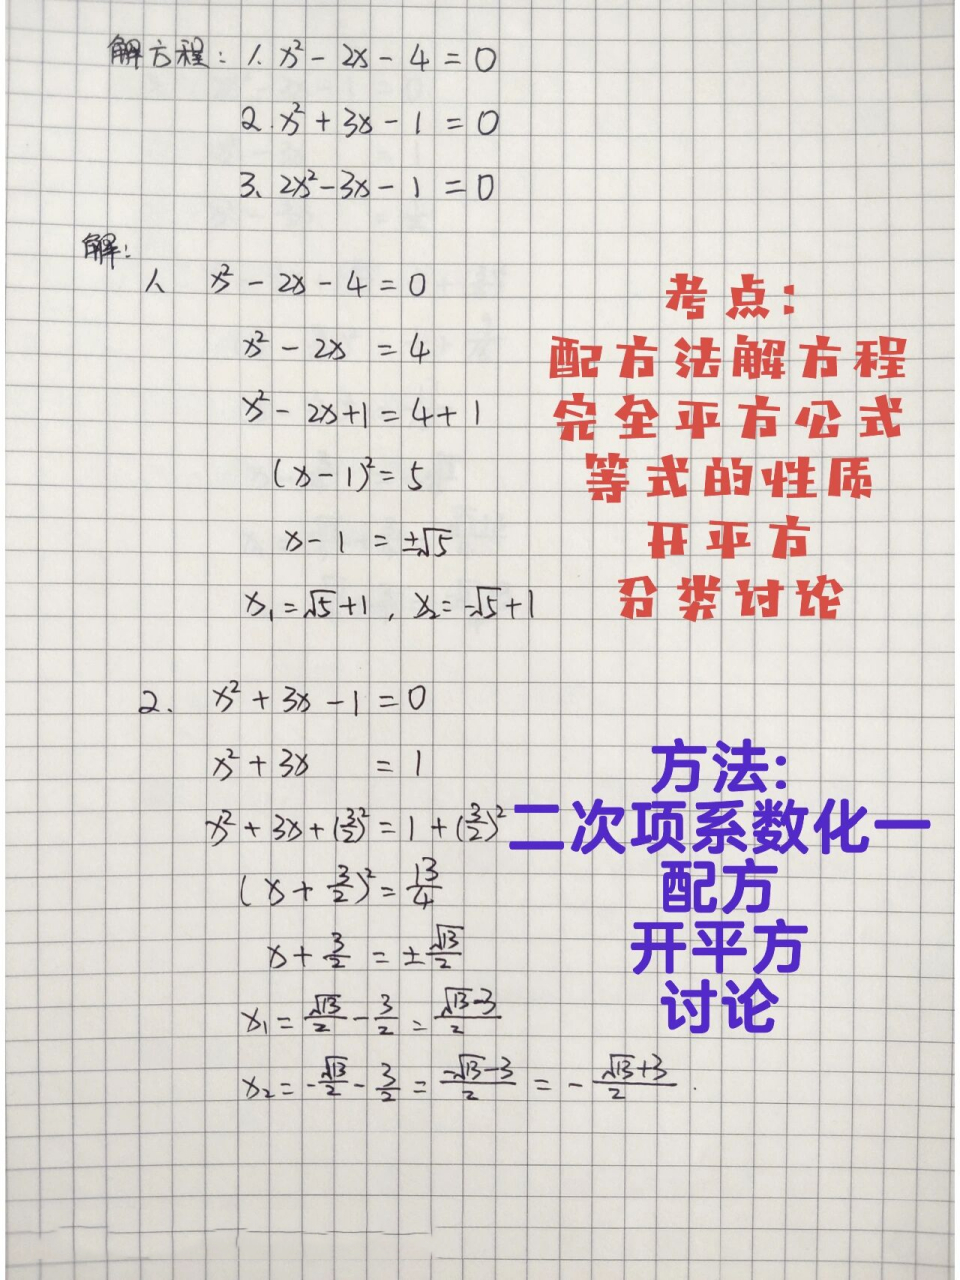 解方程: 1. x² - 2x - 4 = 0
2. x² + 3x - 1 = 0
3. 2x² - 3x - 1 = 0
解:
1. x² - 2x - 4 = 0
x² - 2x = 4
x² - 2x + 1 = 4 + 1
(x - 1)² = 5
x - 1 = ±√5
x₁ = √5 + 1 , x₂ = -√5 + 1
考点:
配方法解方程
完全平方公式
等式的性质
开平方
分类讨论
2. x² + 3x - 1 = 0
x² + 3x = 1
x² + 3x + (3/2)² = 1 + (3/2)²
(x + 3/2)² = 13/4
x + 3/2 = ±√13/2
x₁ = √13/2 - 3/2 = (√13 - 3)/2
x₂ = -√13/2 - 3/2 = (-√13 - 3)/2 = - (√13 + 3)/2 .
方法:
二次项系数化一
配方
开平方
讨论